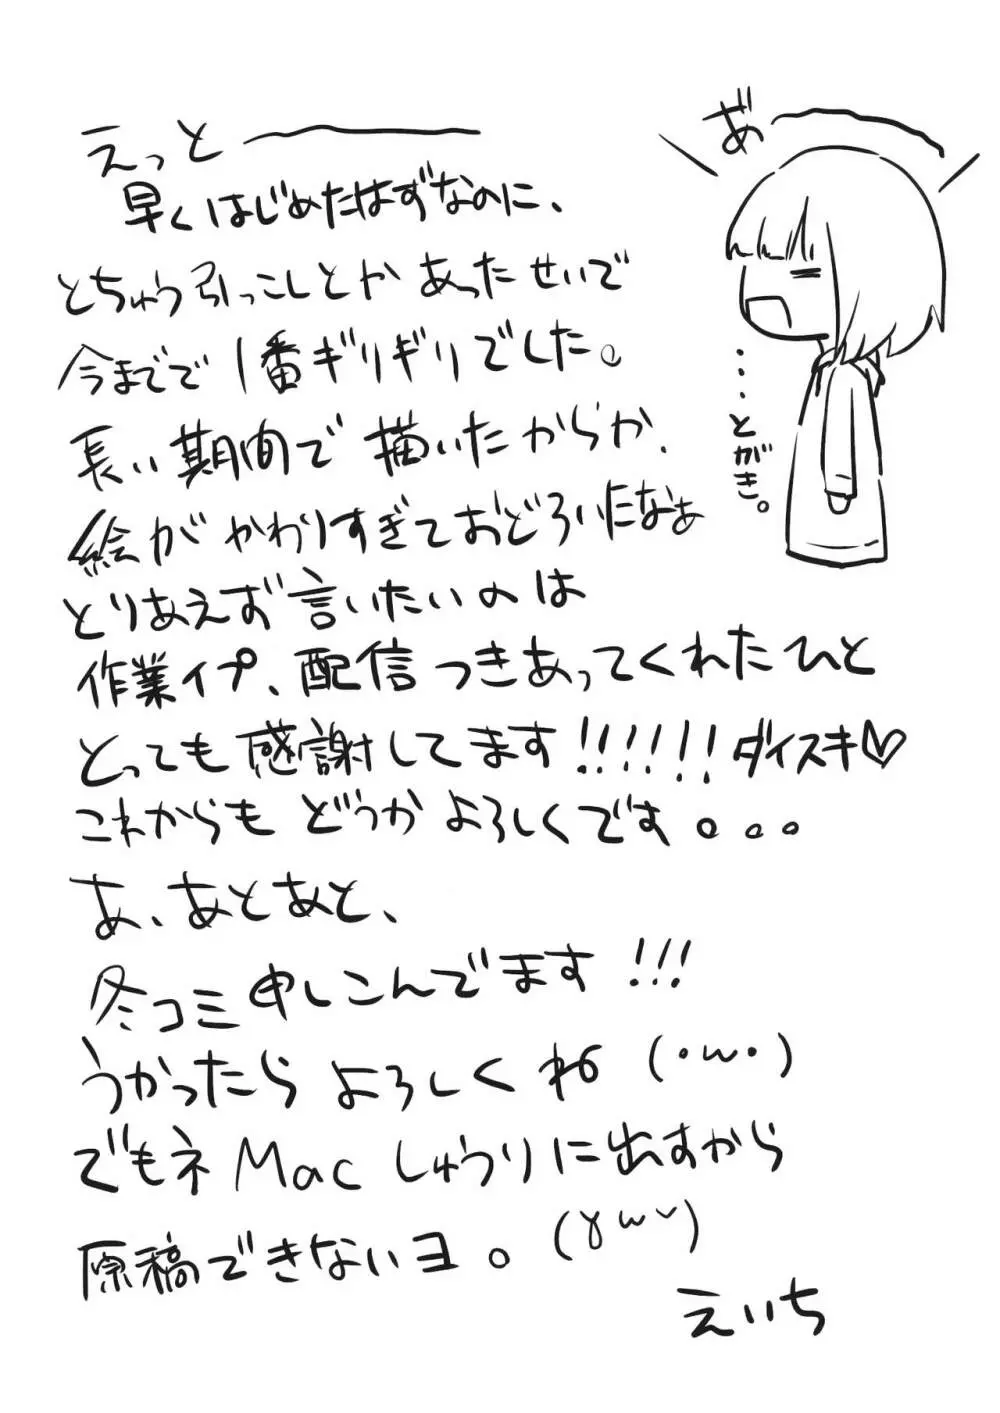 えっと――――
早くはじめたはずなのに、
とちゅう引っこしとかあったせいで
今までで1番ギリギリでした。
長い期間で描いたからか、
絵がかわりすぎておどろいたなぁ
とりあえず言いたいのは
作業イプ、配信つきあってくれたひと
とっても感謝してます!!!!!!ダイスキ♡
これからもどうかよろしくです。。。
あ、あとあと、
冬コミ申しこんでます!!!
うかったらよろしくね(・ω・)
でもネMacしゅうりに出すから
原稿できないヨ。(γω~)
えいち
あ゛――
…とがき。